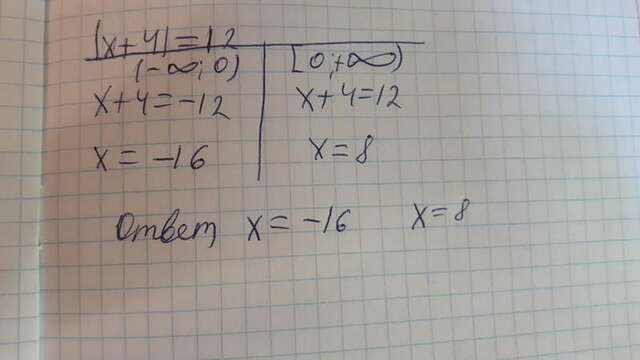 |x+4|=12
(-∞;0) [0;+∞)
x+4=-12 x+4=12
x=-16 x=8
Ответ x=-16 x=8